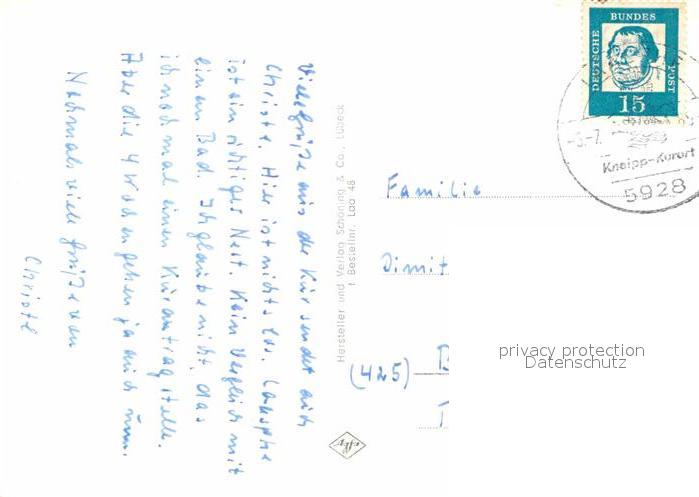 Viele Grüße aus der Kur sendet euch
Christe. Hier ist nichts los. Laasphe
ist ein richtiges Nest. Kein Vergleich mit
einem Bad. Ich glaube nicht, das
ich noch mal einen Kurantrag stelle.
Aber die 4 Wochen gehen ja auch rum.
Nochmals viele Grüße von
Christe
Hersteller und Verlag Schöning & Co., Lübeck
1 Bestellnr. Laa 48
DEUTSCHE
BUNDES
POST
15
-5.-7.
Kneipp-Kurort
5928
Familie
Dimit
(425)
privacy protection
Datenschutz